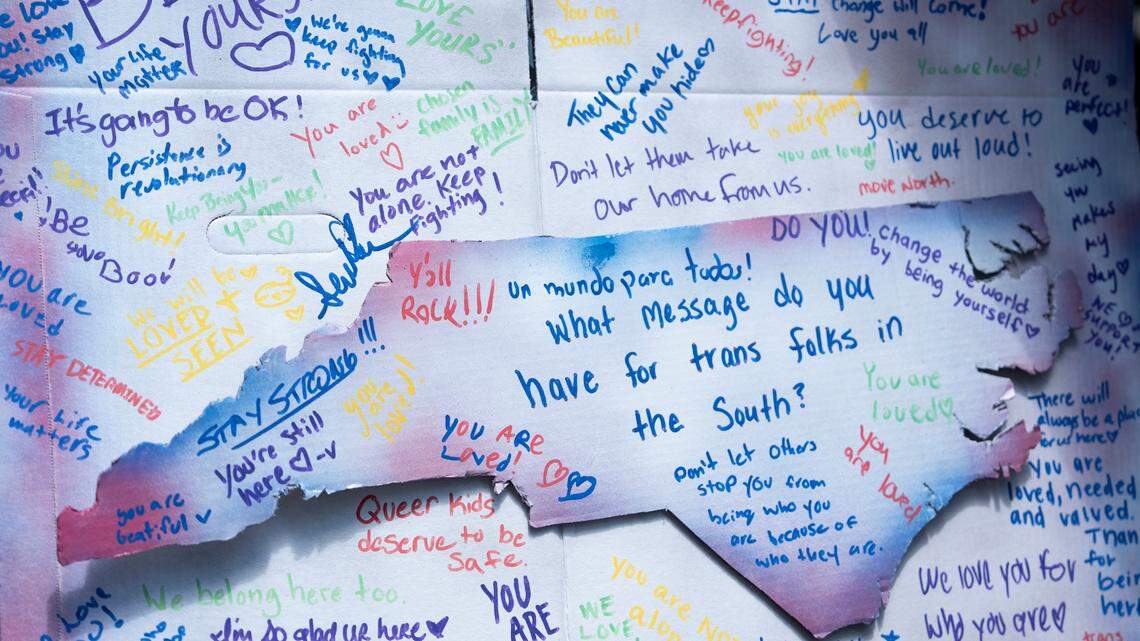 we love
you! Stay
Strong
Your life
matter
YOURS
we're gonna
keep fighting
for us
LOVE
YOURS"
You are
Beautiful!
keep fighting!
STAY
change will come!
Love you all
You are
It's going to be OK!
Persistence is
revolutionary
You are
loved
chosen
family is
FAMILY
They can
never make
you hide
your joy
is everything
You are loved!
You
are
perfect!
you deserve to
live out loud!
you are loved!
move North.
Don't let them take
our home from us.
You are not
alone. Keep
Fighting!
Shine bright!
Keep Being you-
you matter!
Be
Boo!
We will be
LOVED +
SEEN
YOU are
Loved
STAY DETERMINED
Your Life
matters
Y'all
ROCK!!!
un mundo para todos!
What message do you
have for trans folks in
the South?
DO YOU!
change the world
by being yourself
seeing
you
makes
my
day
SUPPORT
YOU!
STAY STRONG!!!
you're still
here -v
you
are
loved!
You are
loved
YOU ARE
Loved!
you
are
loved
Don't let others
stop you from
being who you
are because of
who they are.
There will
always be a
You are
loved, needed
and valued.
you are
beatiful
Queer Kids
deserve to be
safe.
We belong here too.
I'm so glad ur here
YOU
ARE
WE
LOVE
you are Not
alone
We love you for
who you are
Than
for
being
here
trans